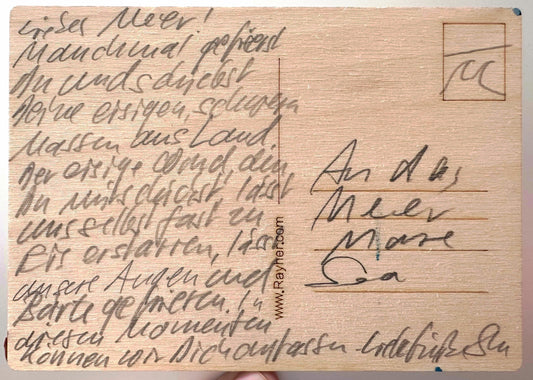 Liebes Meer!
Manchmal gefrierst
Du und schiebst
deine eisigen, schweren
Massen ans Land.
Der eisige Wind, den
Du mitschickst, lässt
uns selbst fast zu
Eis erstarren, lässt
unsere Augen und
Bärte gefrieren. In
diesen Momenten
können wir Dich anfassen.
An das
Meer
Mare
Sea
www.Rayher.com